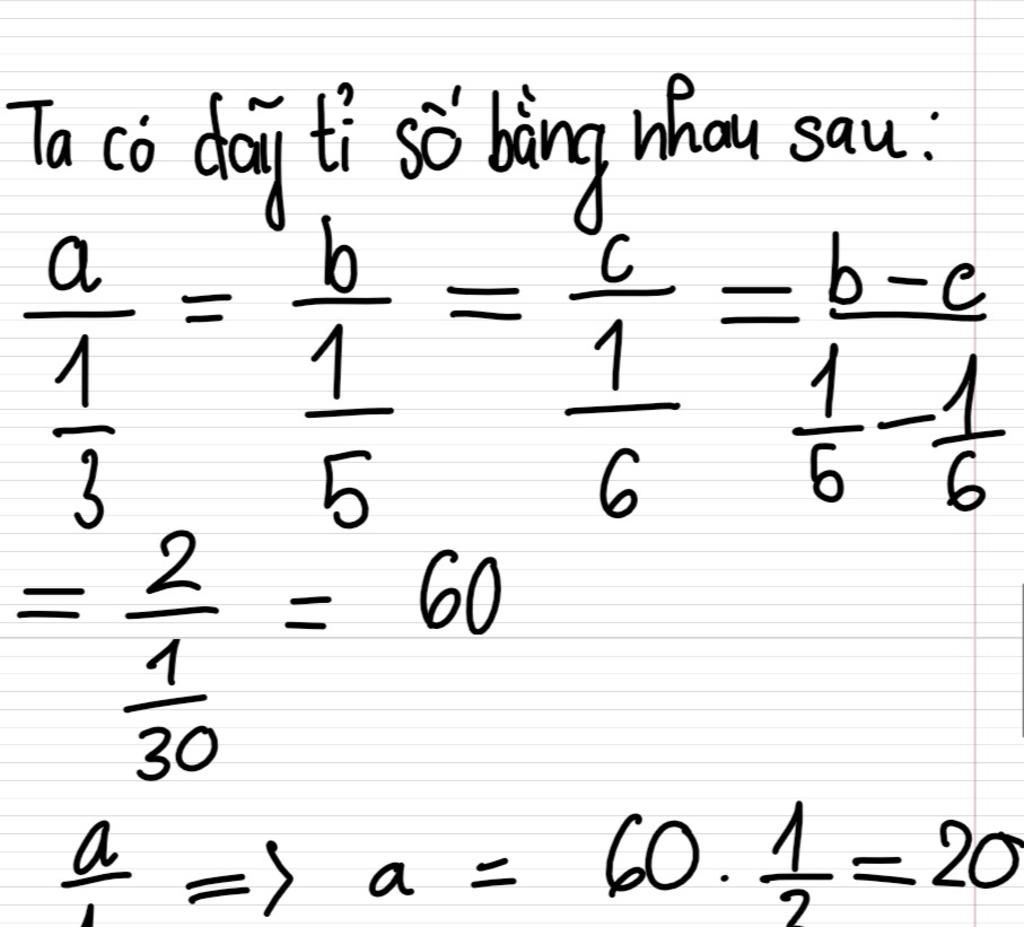 Ta có dãy tỉ số bằng nhau sau:
a/(1/3) = b/(1/5) = c/(1/6) = (b-c)/(1/5 - 1/6)
= 2/(1/30) = 60
a/1 => a = 60 . 1/3 = 20